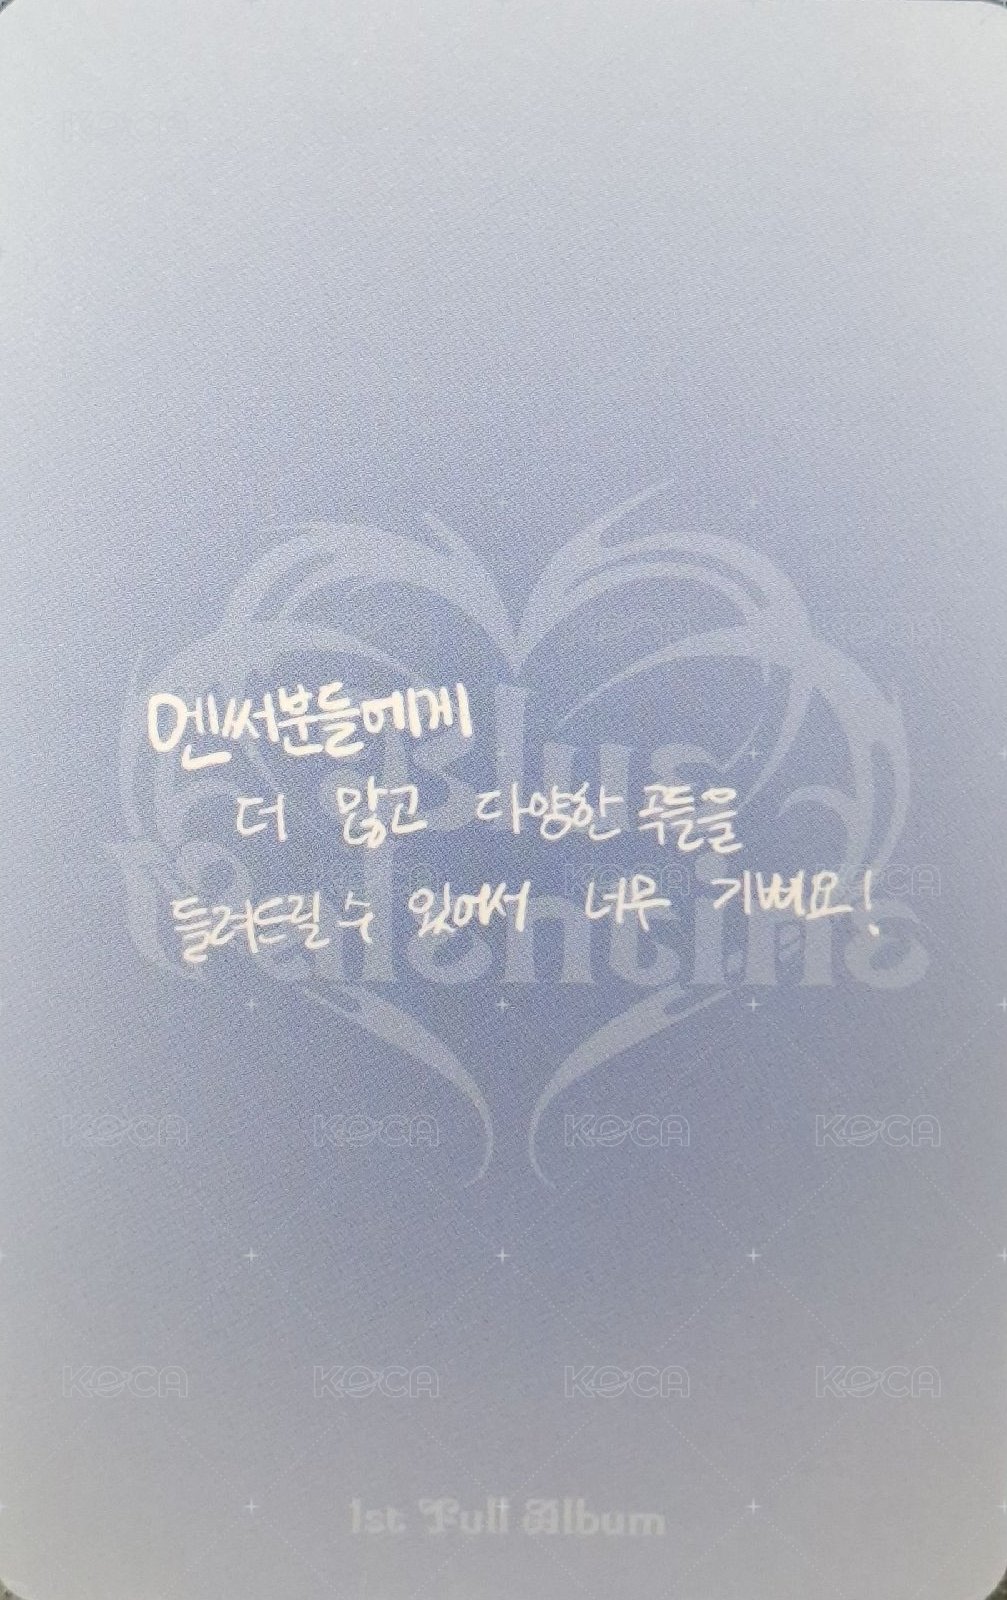 엔써분들에게
더 많고 다양한 곡들을
들려드릴 수 있어서 너무 기뻐요!
Blue
Valentine
1st Full Album
KOCA
KOCA KOCA KOCA
KOCA KOCA KOCA KOCA
KOCA KOCA KOCA KOCA